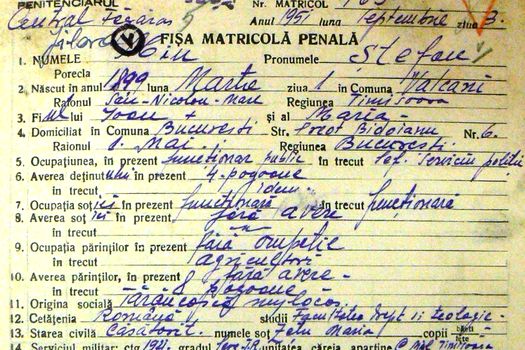 PENITENCIARUL
NR. MATRICOL
Central Făgăraș Anul 1951 luna Septembrie ziua 3.
Jilava
V FIȘA MATRICOLĂ PENALĂ
1. NUMELE Pronumele Ștefan
Porecla
2. Născut în anul 1899 luna Martie ziua 1 în Comuna Valcani
Raionul Sân-Nicolau-Mare Regiunea Timișoara
3. Fiul lui Ioan + și al Maria -
4. Domiciliat în Comuna București Str. Bidoianu Nr. 6.
Raionul 1. Mai. Regiunea București
5. Ocupațiunea, în prezent funcționar public în trecut Șef. Serviciu poliție
6. Averea deținutului în prezent 4 pogoane
în trecut idem
7. Ocupația soției în prezent funcționară în trecut funcționară
8. Averea soției în prezent fără avere
în trecut
9. Ocupația părinților în prezent fără ocupație
în trecut agricultori
10. Averea părinților, în prezent fără avere -
în trecut 8 pogoane
11. Origina socială Țărănească mijlocași
12. Cetățenia Română studii Facultatea drept și teologie -
13. Starea civilă Căsătorit. numele soț Maria copii băeți fete
14. Serviciul militar: ctg. 1921. gradul unitatea căreia aparține Timișoara